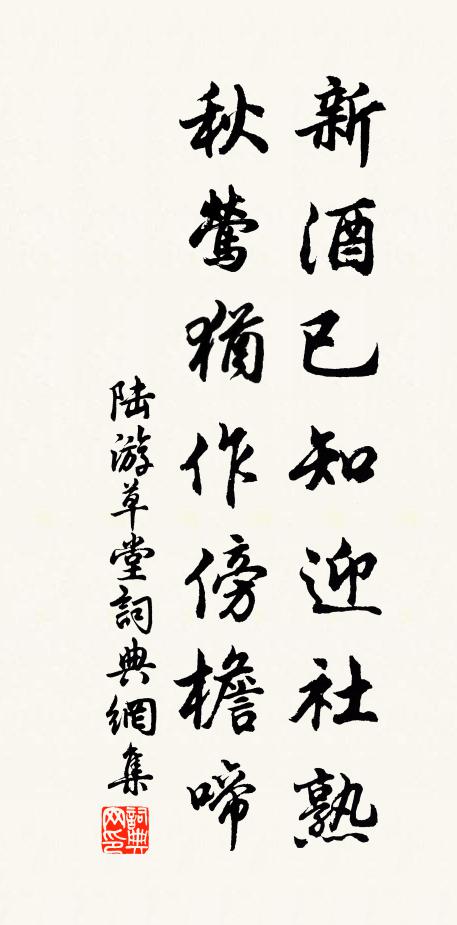 新酒已知迎社熟
秋莺猶作傍檐啼
陆游草堂詞典網集
詞典网印